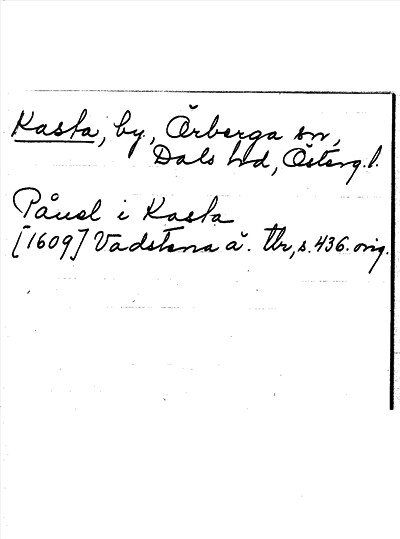 Kasta, by, Örberga sn,
Dals hd, Österg.l.
Påuel i Kasta
[1609] Vadstena ä. tbr, s. 436. orig.